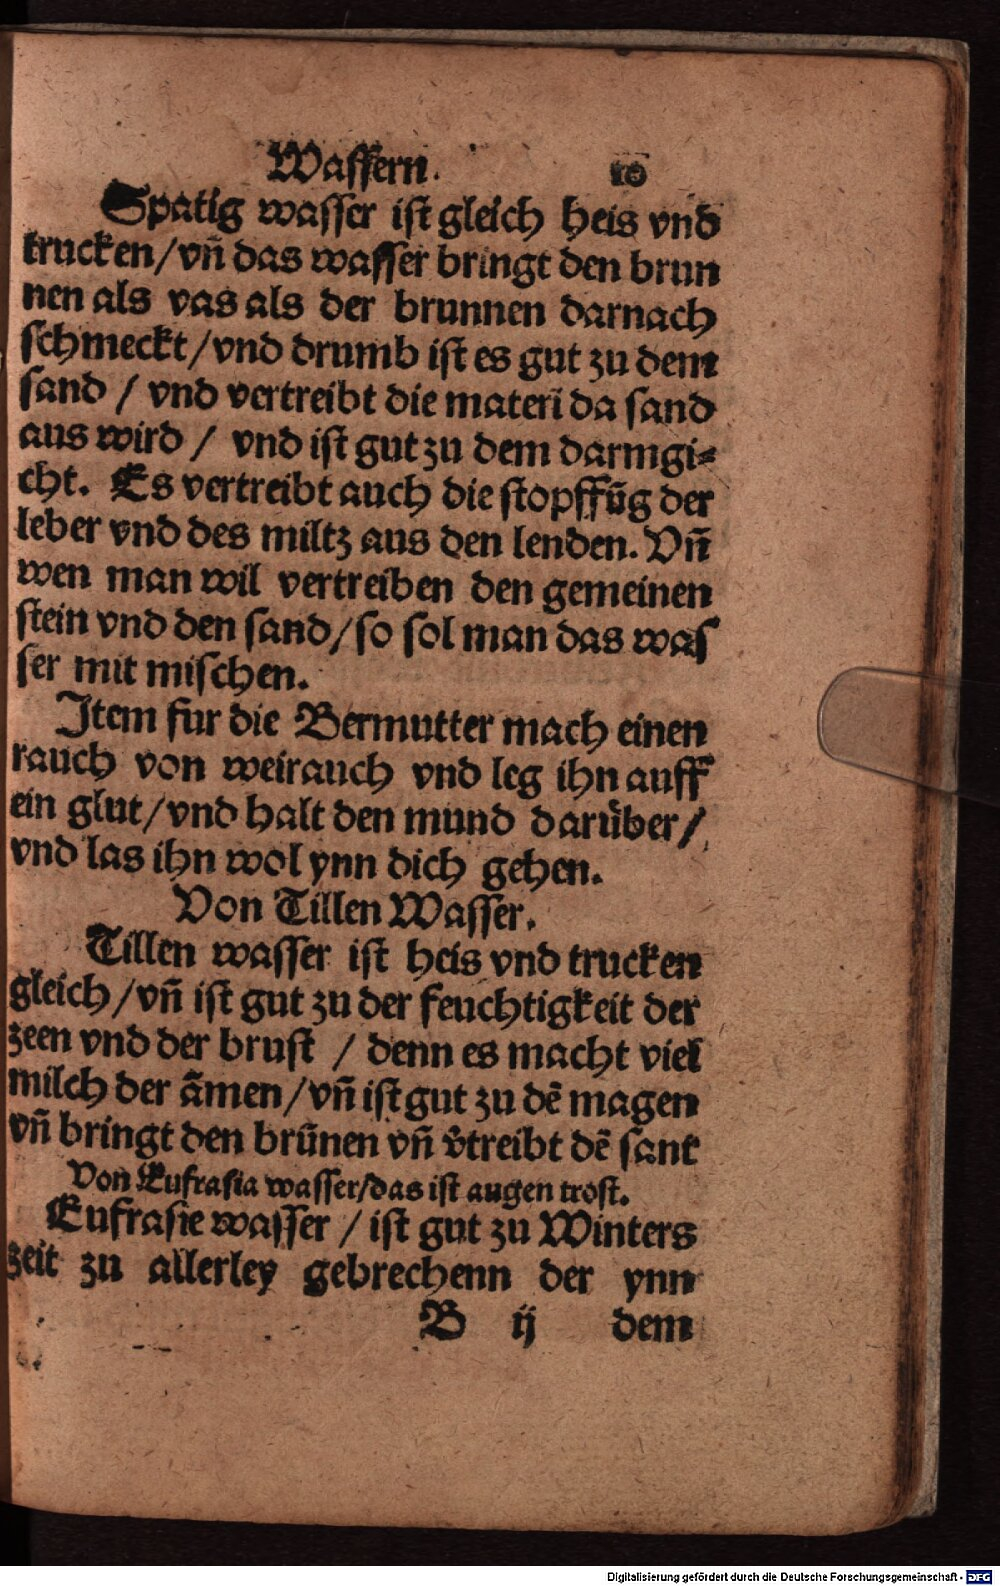 Wassern. 10
Spatig wasser ist gleich heis vnd
trucken/vn̄ das wasser bringt den brun
nen als vas als der brunnen darnach
schmeckt/vnd drumb ist es gut zu dem
sand / vnd vertreibt die materi da sand
aus wird / vnd ist gut zu dem darmgi⸗
cht. Es vertreibt auch die stopffūg der
leber vnd des miltz aus den lenden. Vn̄
wen man wil vertreiben den gemeinen
stein vnd den sand/so sol man das was
ser mit mischen.
Item fur die Bermutter mach einen
rauch von weirauch vnd leg ihn auff
ein glut/vnd halt den mund darüber/
vnd las ihn wol ynn dich gehen.
Von Tillen Wasser.
Tillen wasser ist heis vnd trucken
gleich/vn̄ ist gut zu der feuchtigkeit der
zeen vnd der brust / denn es macht viel
milch der āmen/vn̄ ist gut zu dē magen
vn̄ bringt den brūnen vn̄ v̄treibt dē sant
Von Eufrasia wasser/das ist augen trost.
Eufrasie wasser / ist gut zu Winters
zeit zu allerley gebrechenn der ynn
B ij dem
Digitalisierung gefördert durch die Deutsche Forschungsgemeinschaft - DFG